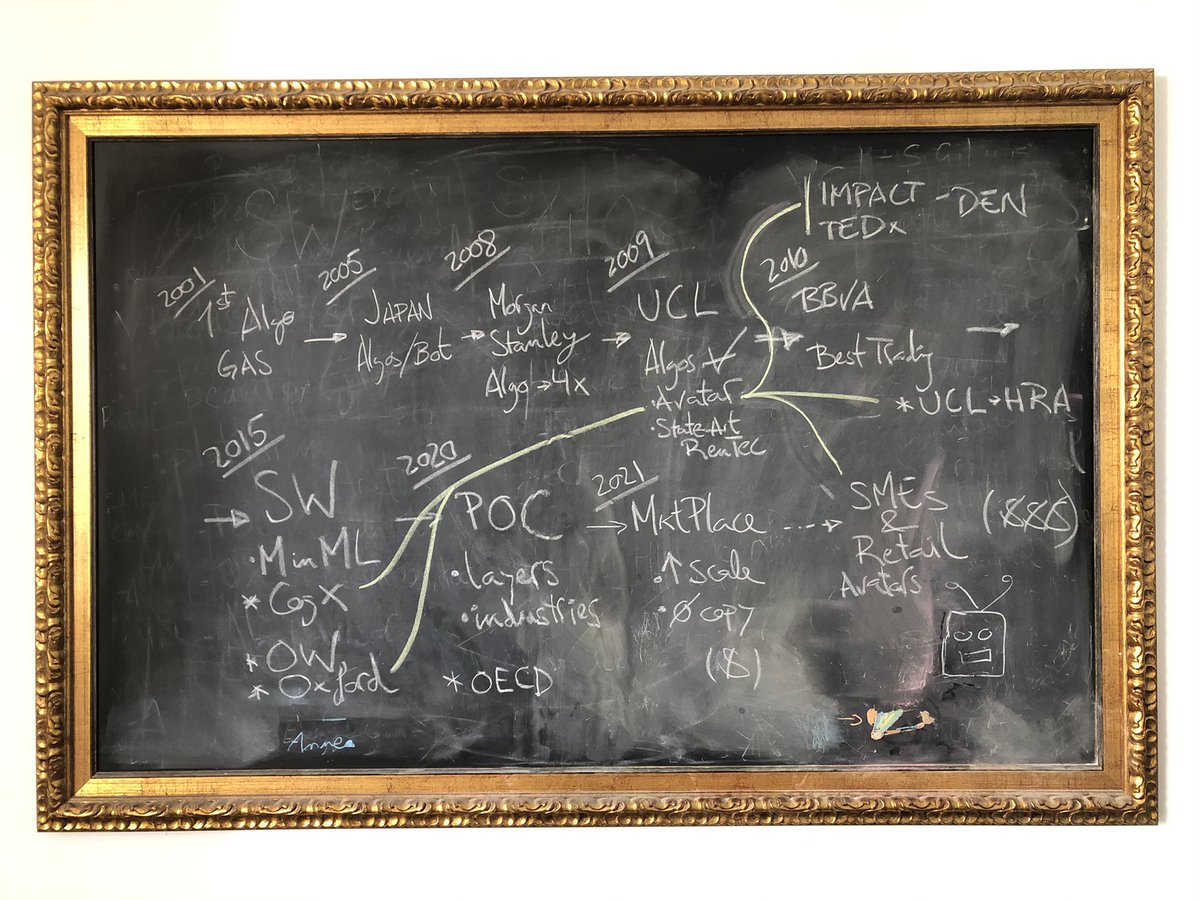 IMPACT -DEN
TEDx
2001
1st Algo
GAS
2005
JAPAN
Algos/Bot
2008
Morgan
Stanley
Algo→4x
2009
UCL
Algos
·Avatar
·State-Art
RenTec
2010
BBVA
Best Trading
*UCL→HRA
2015
SW
·MinML
*CogX
*OW
*Oxford
2020
POC
·layers
·industries
*OECD
2021
MktPlace
·↑ scale
·Ø copy
($)
SMEs
&
Retail
Avatars
($$$)
Anne